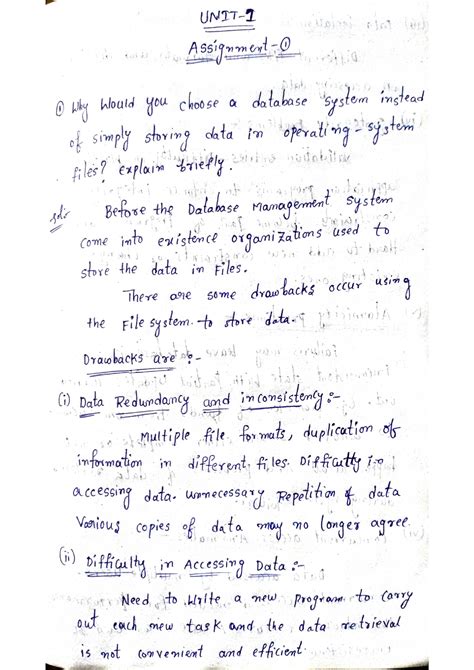 UNIT-1
Assignment-①
① Why Would you choose a database system instead
of simply storing data in operating-system
files? explain briefly.
Sol:- Before the Database Management System
come into existence organizations used to
store the data in Files.
There are some drawbacks occur using
the File system to store data.
Drawbacks are :-
(i) Data Redundancy and inconsistency :-
Multiple file formats, duplication of
information in different files. Difficulty in
accessing data. unnecessary Repetition of data
Various copies of data may no longer agree.
(ii) Difficulty in Accessing Data :-
Need to Write a new program to carry
out each new task and the data retrieval
is not convenient and efficient.